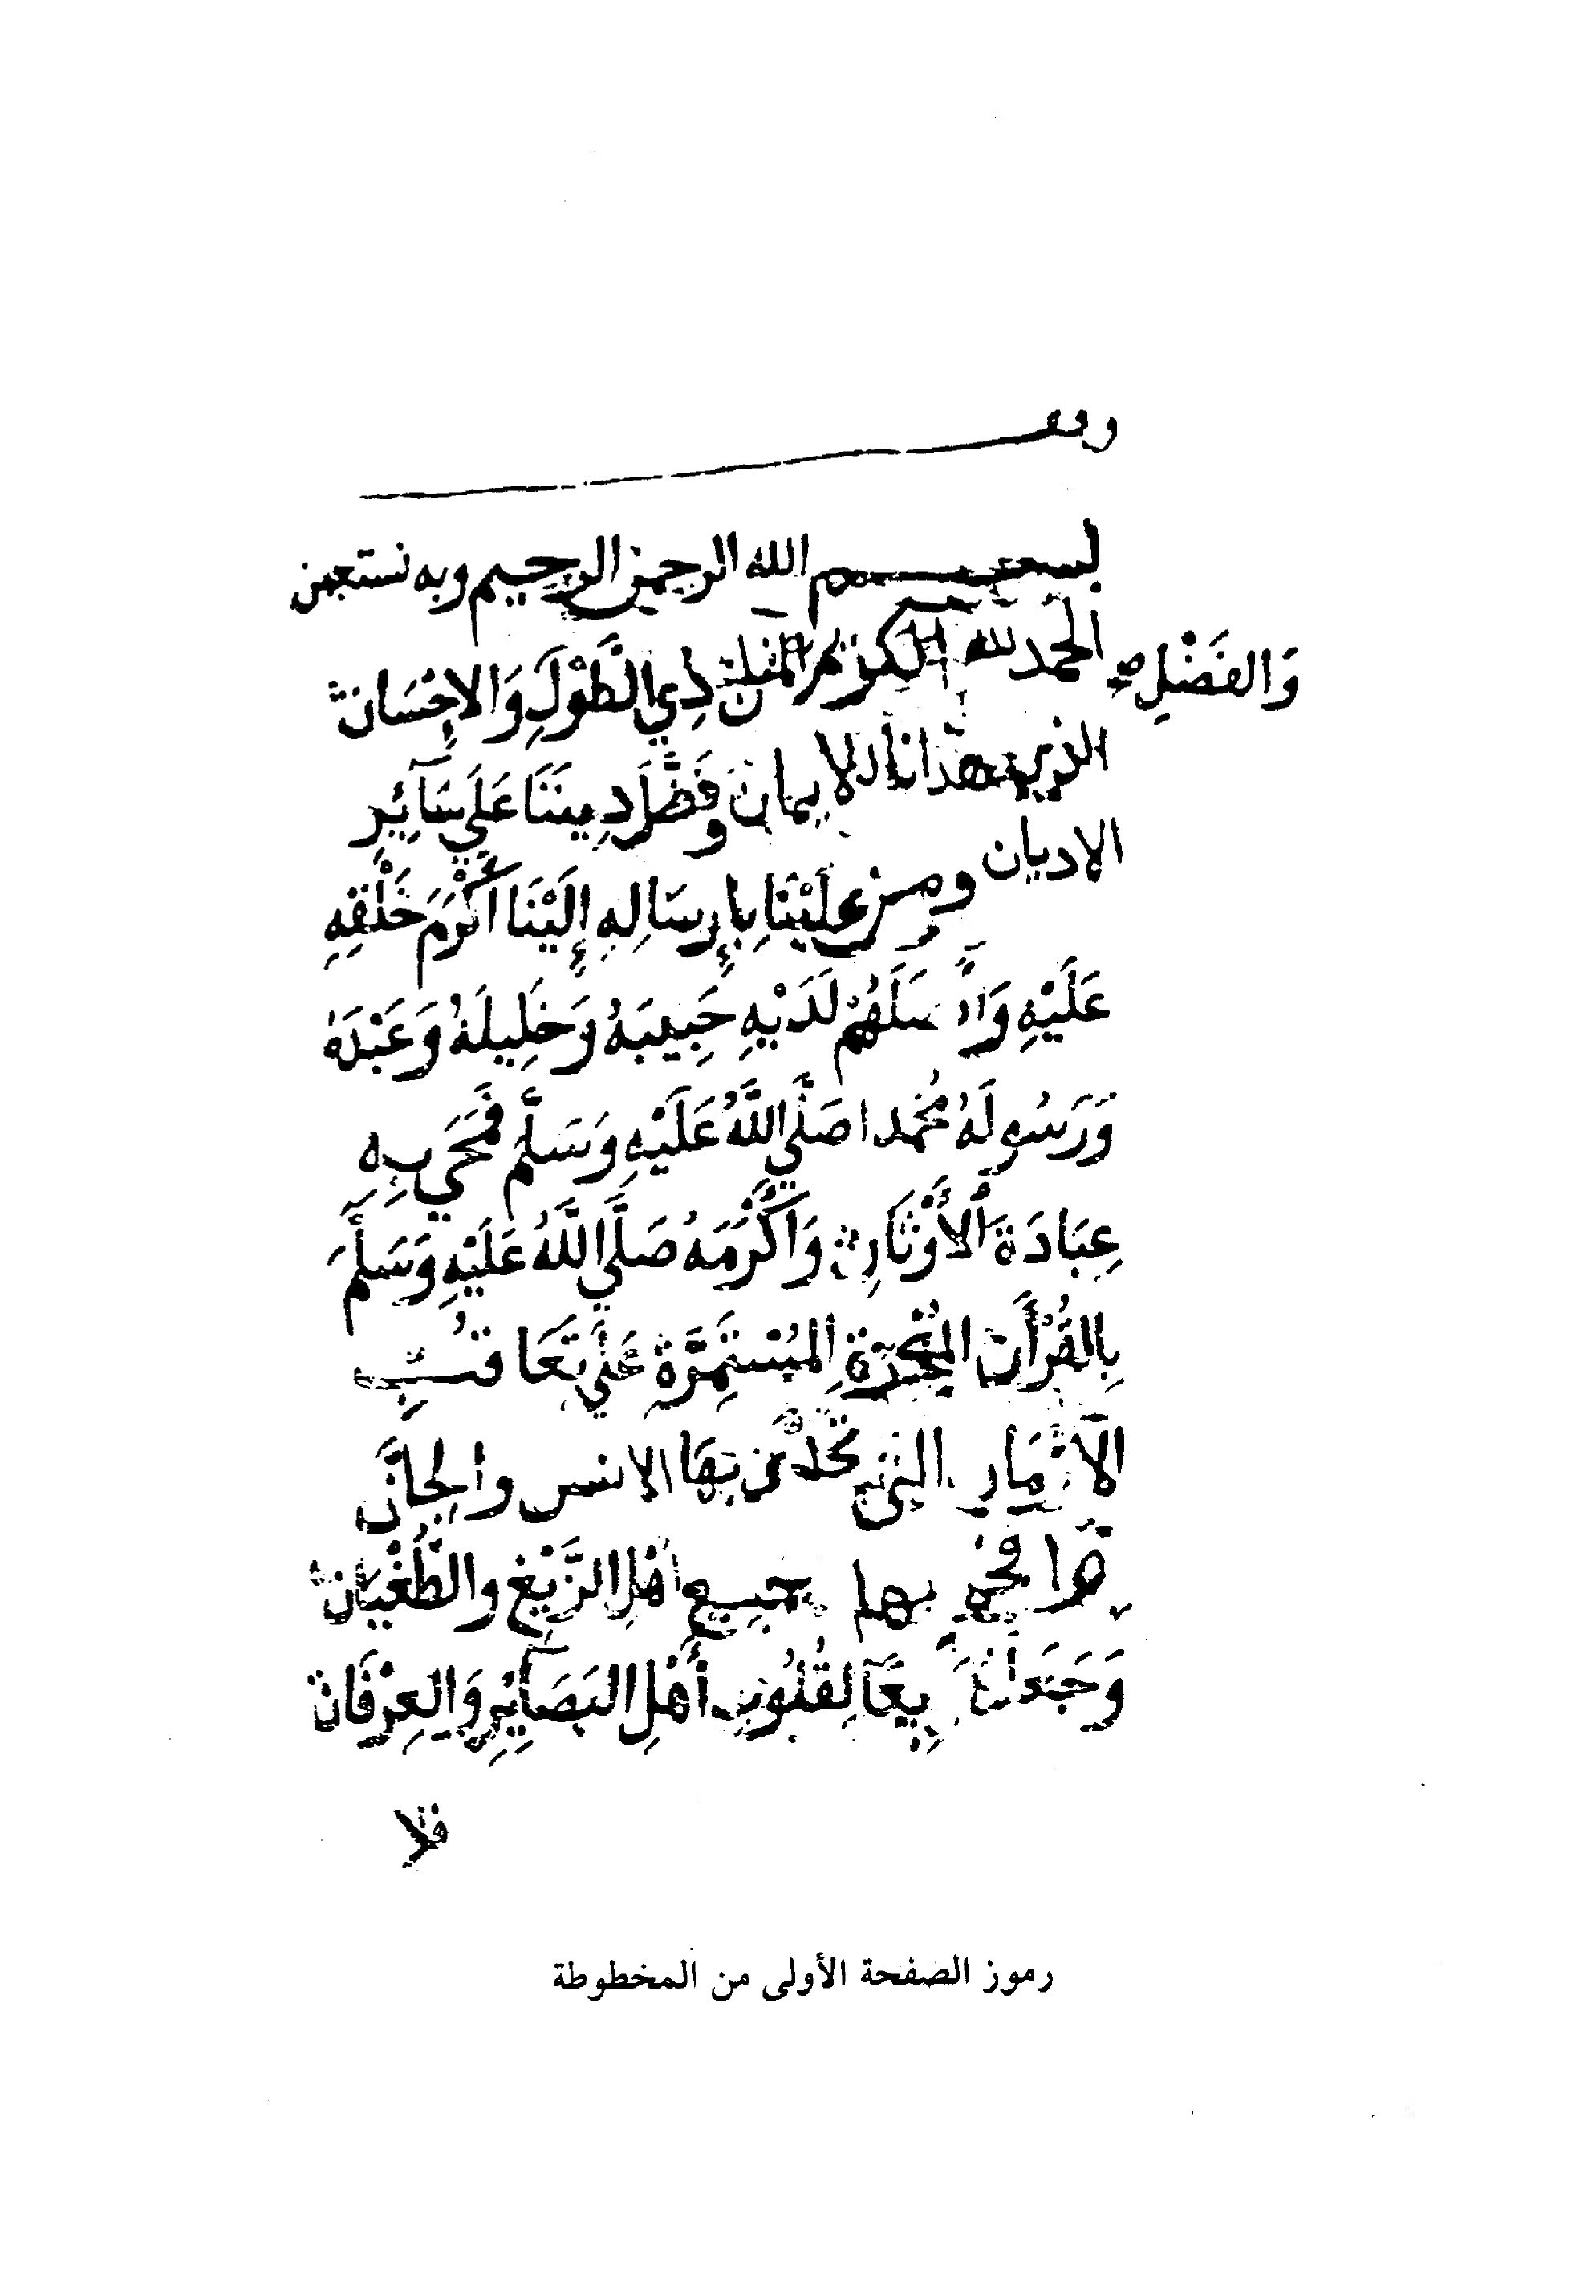 وقف
بسم الله الرحمن الرحيم وبه نستعين
الحمد لله الكريم المنان ذي الطَّوْلِ وَالإحْسَان
وَالفَضْلِ صح
الذي هدانا للإيمان وفَضَّلَ دِينَنَا عَلَي سَآئِرِ
الاديان ومن عَلَيْنَا بِإِرسَالِهِ إِلَيْنَا أَكْرَمَ خَلْقِهِ
عَلَيْهِ وَأَفْضَلَهُمْ لَدَيْهِ حَبِيبَهُ وَخَلِيلَهُ وَعَبْدَهُ
وَرَسُولَهُ مُحَمدا صَلَّي اللَّهُ عَلَيْهِ وَسَلَّمَ فَمَحَي بِهِ
عِبَادَةَ الأَوْثَانِ وَأَكْرَمَهُ صَلَّي اللَّهُ عَلَيْهِ وَسَلَّمَ
بِالقُرْأَنِ المُعْجِزَةِ المُسْتَمِرَّةِ عَلَي تَعَاقُبِ
الأَزْمَانِ التي تحدي بِهَا الإنس والجَانَّ
وأفحم بها جميع أهْلِ الزَّيْغِ والطُّغْيَانِ
وَجَعَلَهُ رَبِيعًا لِقُلُوبِ أَهْلِ البَصَآئِرِ وَالعِرْفَانِ
فلا
رموز الصفحة الأولى من المخطوطة